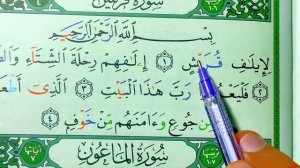 سُورَةُ قُرَيْشٍ
بِسْمِ ٱللَّهِ ٱلرَّحْمَٰنِ ٱلرَّحِيمِ
لِإِيلَٰفِ قُرَيْشٍ ١ إِۦلَٰفِهِمْ رِحْلَةَ ٱلشِّتَآءِ
٢ رَبَّ هَٰذَا ٱلْبَيْتِ ٣ ٱلَّذِىٓ
مِّن جُوعٍ وَءَامَنَهُم مِّنْ خَوْفٍۭ ٤
سُورَةُ ٱلْمَاعُونِ